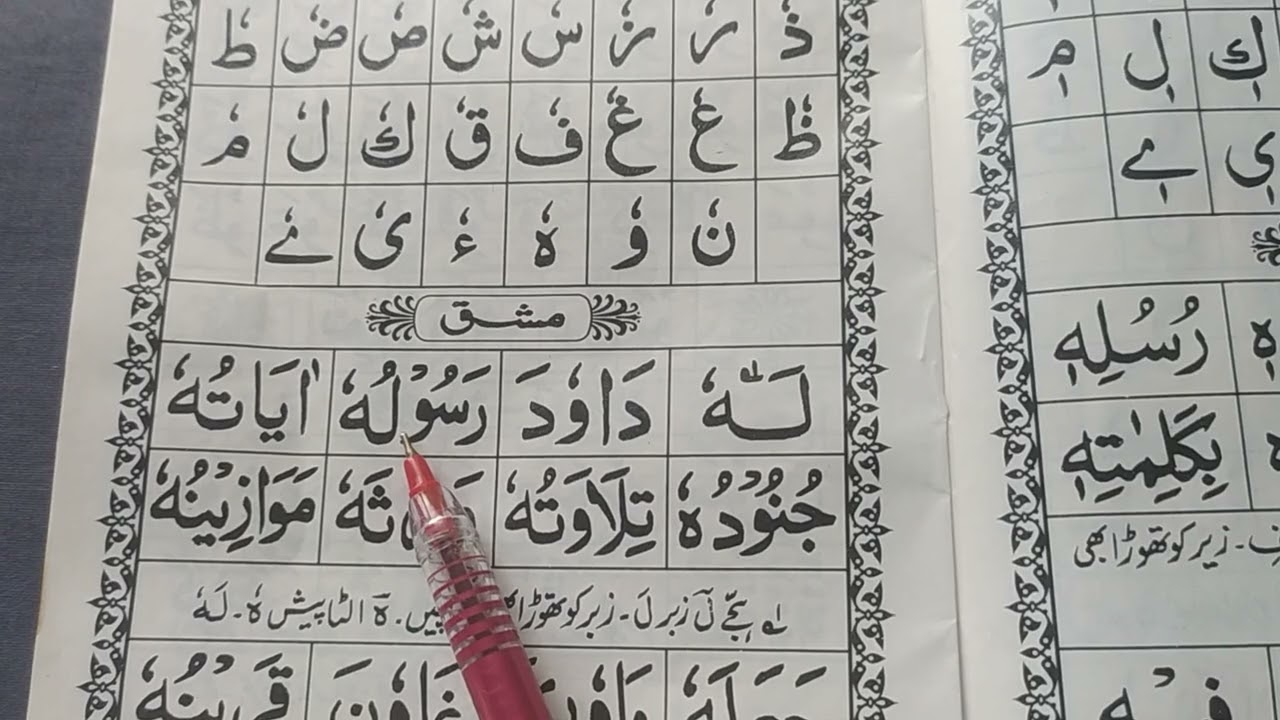 ذٗ رٗ زٗ سٗ شٗ صٗ ضٗ طٗ
ظٗ عٗ غٗ فٗ قٗ كٗ لٗ مٗ
نٗ وٗ هٗ ءٗ ىٗ ےٗ
مشق
لَهٗ دَاوٗدَ رَسُوْلُهٗ اٰيَاتُهٗ
جُنُوْدُهٗ تِلَاوَتُهٗ مَوَازِيْنُهٗ
ہجّے لَ زبر لَ۔ زبر کو تھوڑا ہٗ الٹا پیش ہٗ۔ لَہٗ
قَرِيْنُهٗ
كٖ لٖ مٖ
ىٖ ےٖ
رُسُلِهٖ
بِكَلِمٰتِهٖ
زیر کو تھوڑا بھی